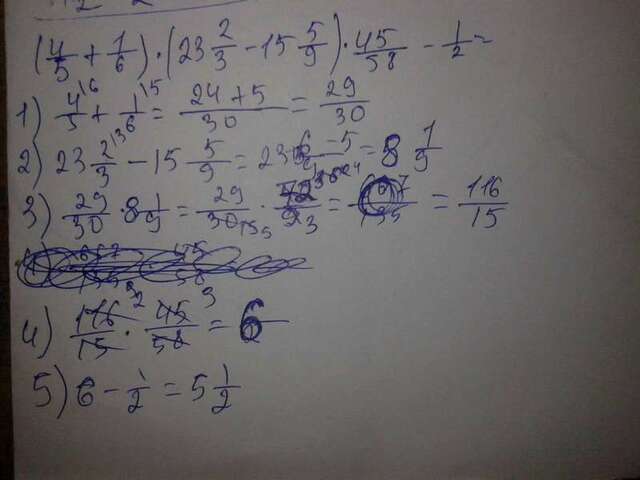 (4/5 + 1/6) · (23 2/3 - 15 5/9) · 45/58 - 1/2 =
1) 4/5 + 1/6 = 24+5/30 = 29/30
2) 23 2/3 - 15 5/9 = 23 6-5/9 = 8 1/9
3) 29/30 · 8 1/9 = 29/30 · = = 116/15
4) 116/15 · 45/58 = 6
5) 6 - 1/2 = 5 1/2